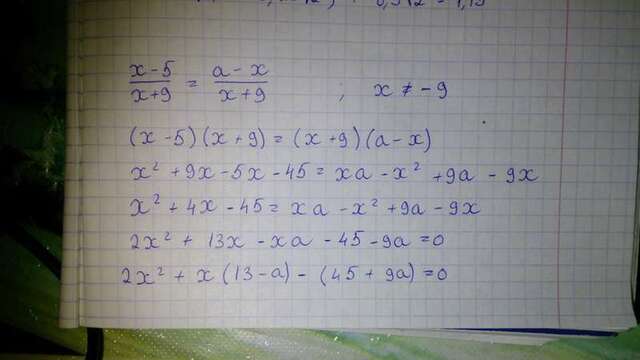 x-5/x+9 = a-x/x+9 ; x ≠ -9
(x-5)(x+9)=(x+9)(a-x)
x² +9x-5x-45= xa-x² +9a -9x
x² +4x-45=xa-x² +9a-9x
2x² +13x -xa-45-9a=0
2x² + x(13-a)-(45+9a)=0